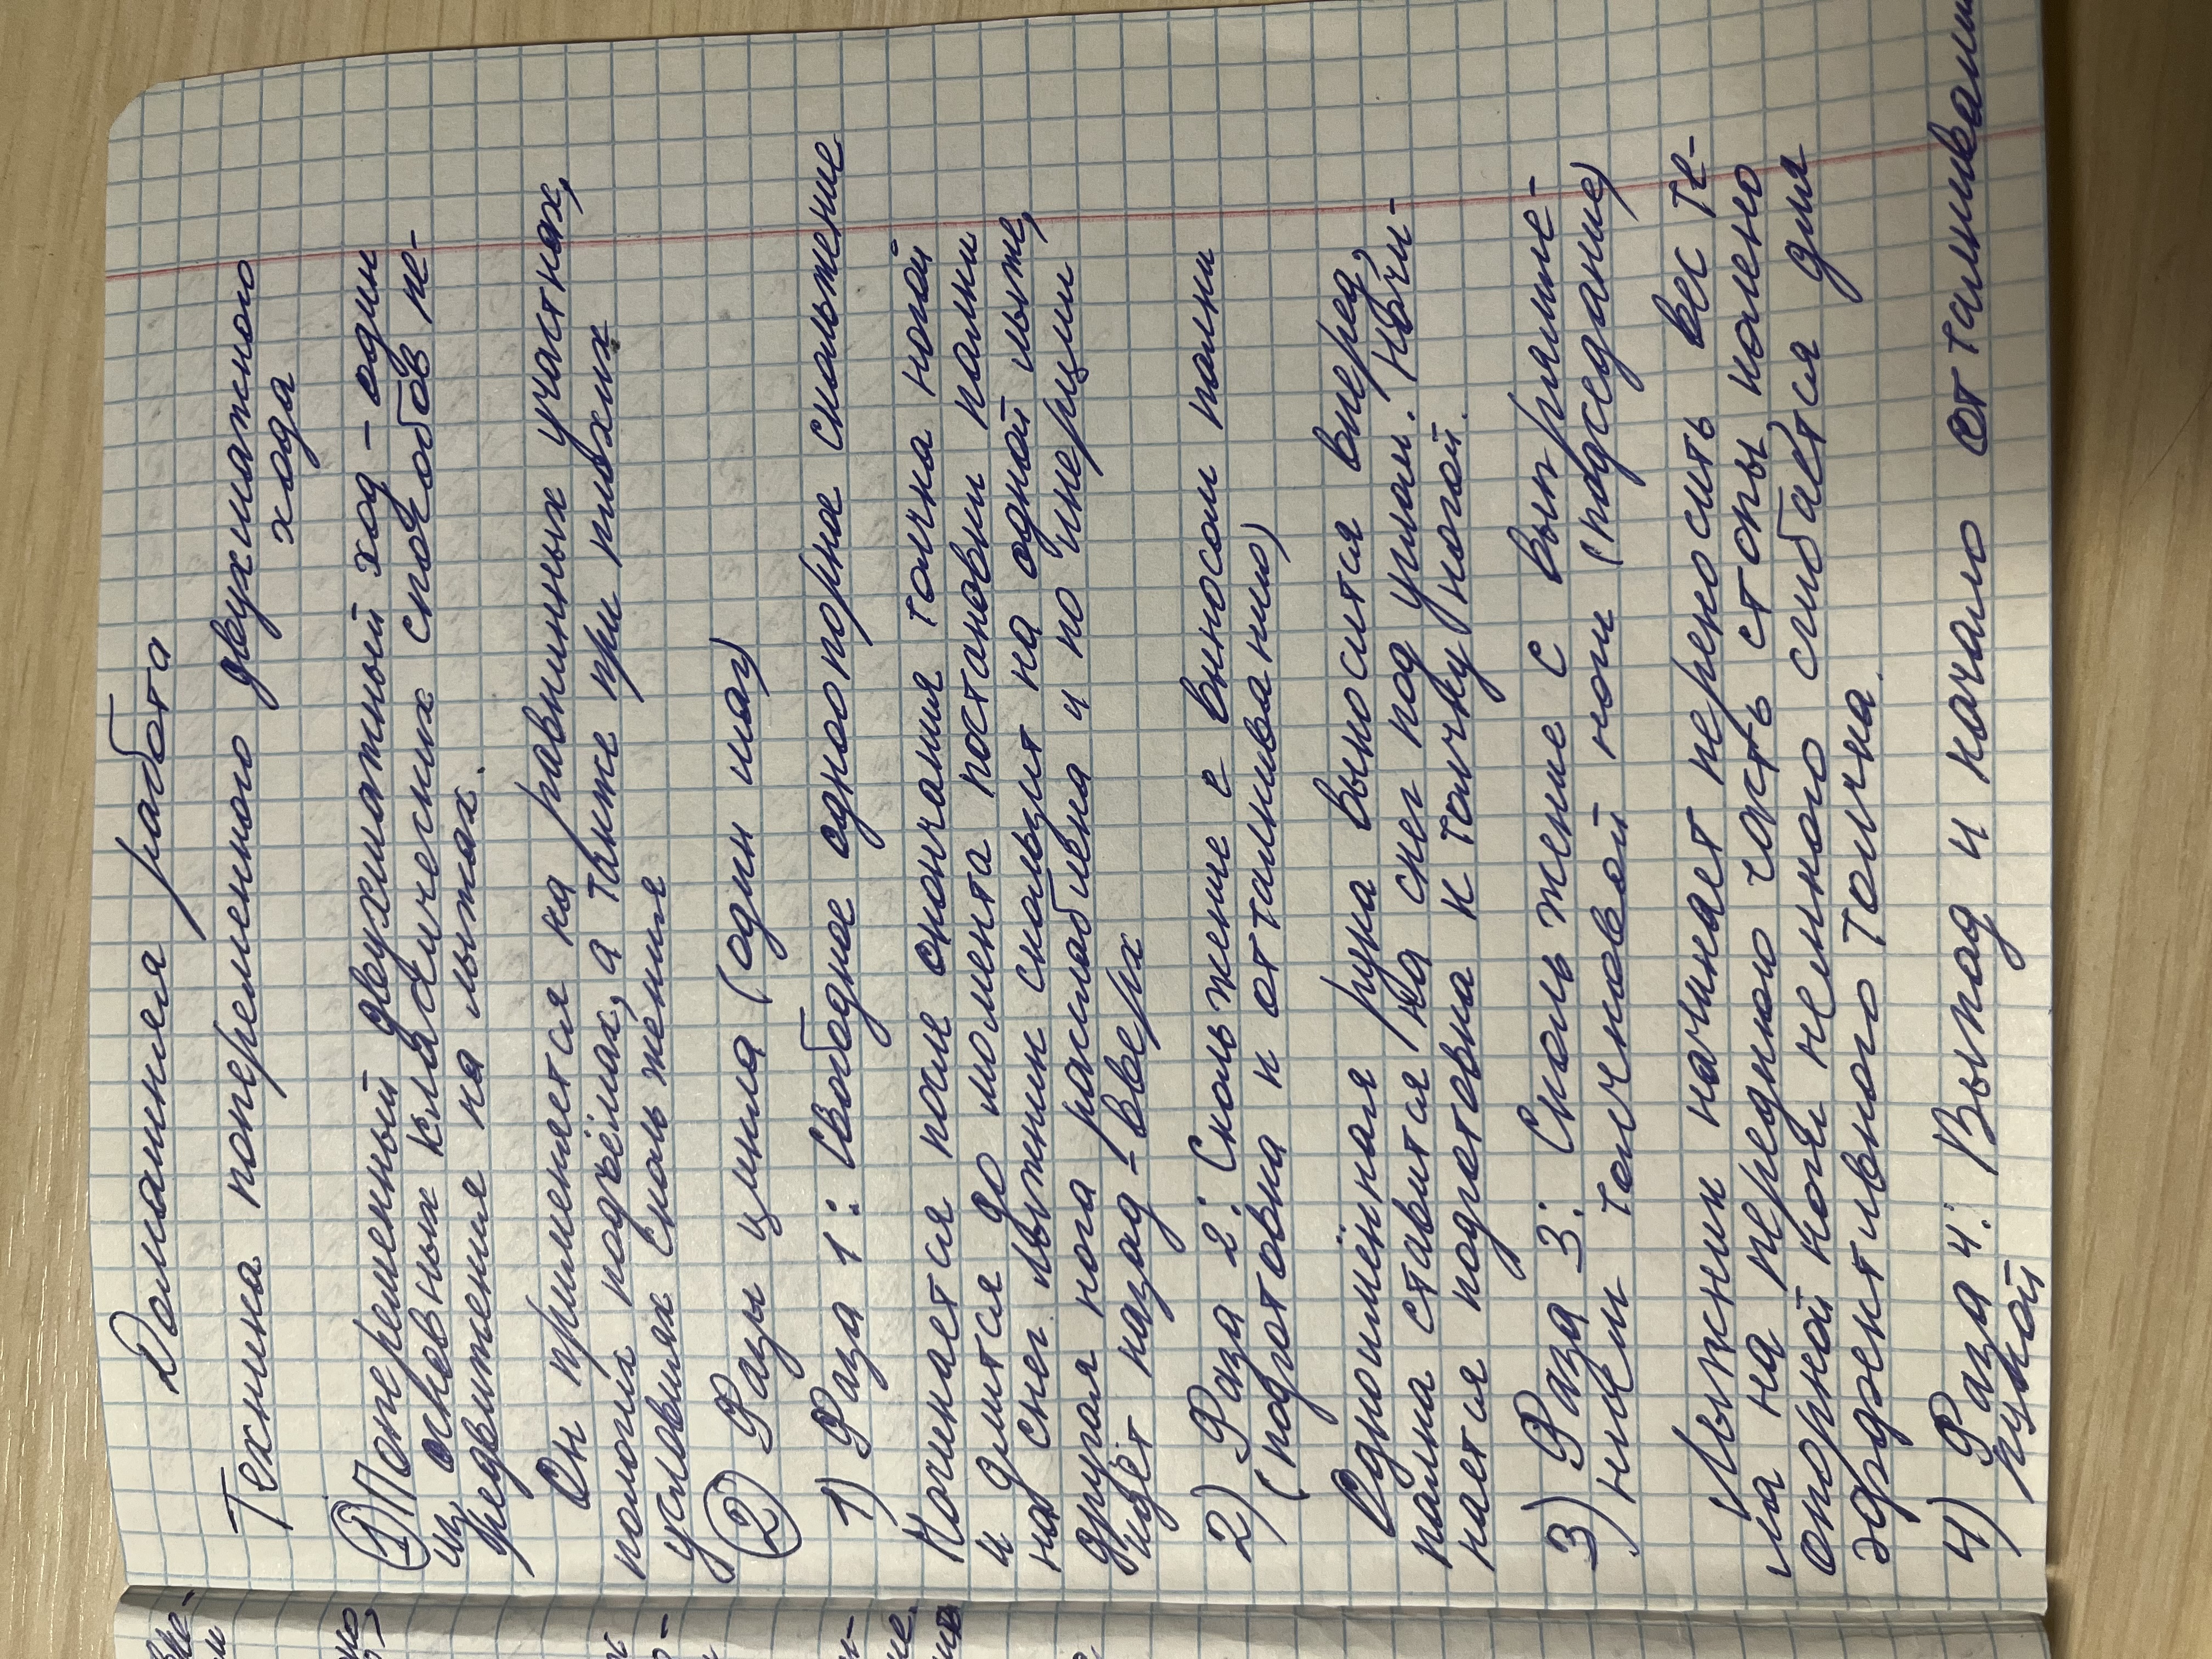 Домашняя работа
Техника попеременного двухшажного
хода
① Попеременный двухшажный ход - один
из основных классических способов пе-
редвижения на лыжах.
Он применяется на равнинных участках,
пологих подъёмах, а также при плохих
условиях скольжения
② Фазы цикла (один шаг)
1) Фаза 1: Свободное одноопорное скольжение
Начинается после окончания толчка ногой
и длится до момента постановки палки
на снег. Лыжник скользит на одной лыже,
другая нога расслаблена и по инерции
идёт назад-вверх
2) Фаза 2: Скольжение с выносом палки
(подготовка к отталкиванию)
Одноимённая рука выносится вперед,
палка ставится на снег под углом. Начи-
нается подготовка к толчку ногой.
3) Фаза 3: Скольжение с выпрямле-
нием толчковой ноги (подседание)
Лыжник начинает переносить вес те-
ла на переднюю часть стопы, колено
опорной ноги немного сгибается для
эффективного толчка.
4) Фаза 4: Выпад и начало отталкивания
рукой